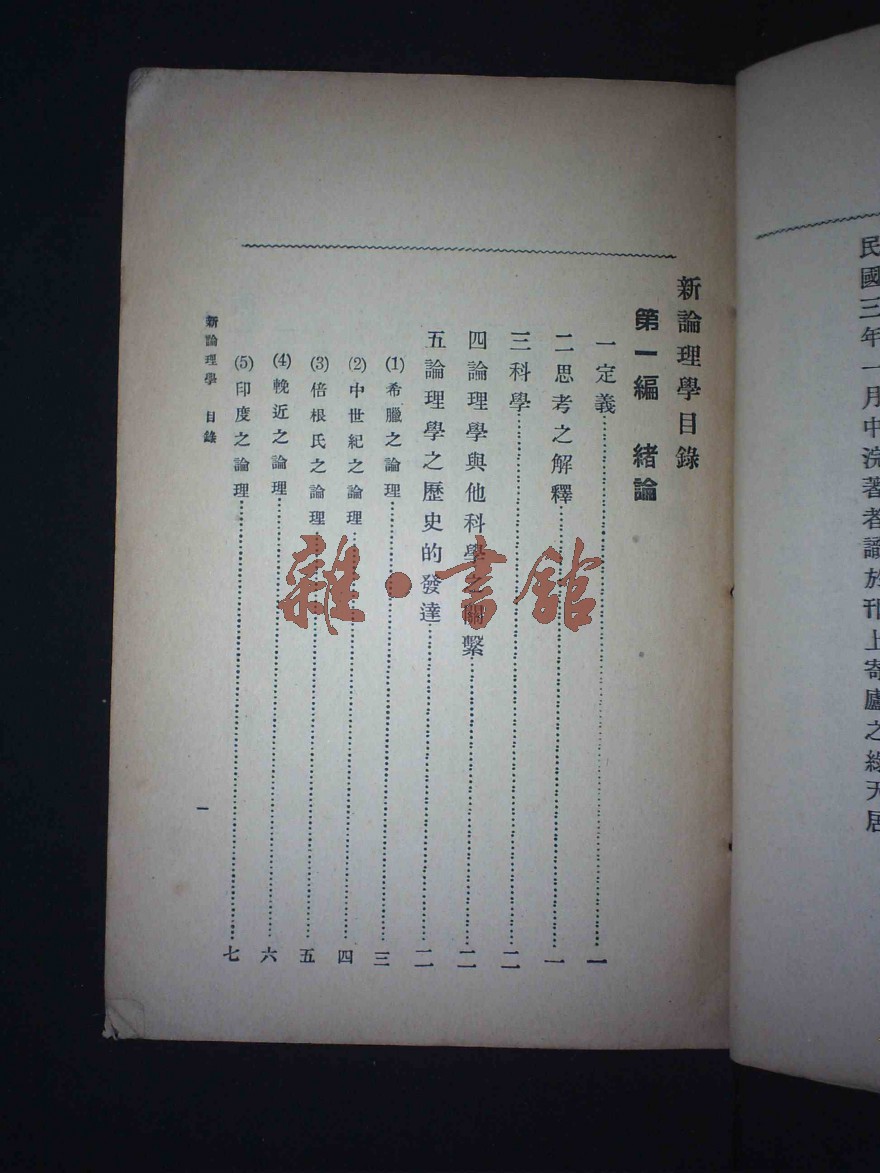 民國三年一月中浣著者識於刊上寄廬之綠天居
新論理學目錄
第一編 緒論
一定義……一
二思考之解釋……一
三科學……二
四論理學與他科學之關繫……二
五論理學之歷史的發達……二
(1)希臘之論理……三
(2)中世紀之論理……四
(3)倍根氏之論理……五
(4)輓近之論理……六
(5)印度之論理……七
新論理學 目錄
一
雜·書館